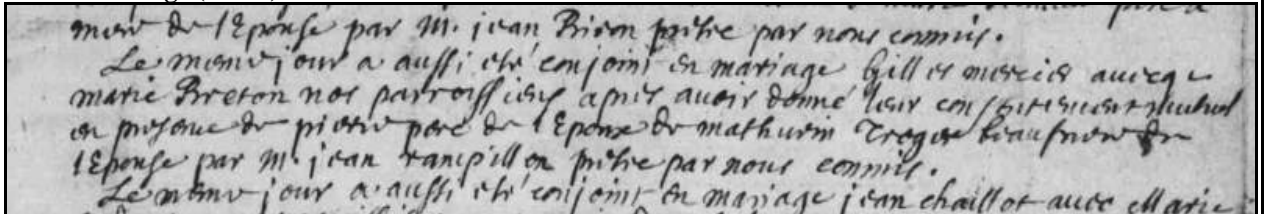 mere de l'Epouse par M. jean Biron prêtre par nous commis.
Le meme jour a aussi eté conjoint en mariage Gilles mercier avecque
marie Breton nos parroissiens apres avoir donné leur consentement mutuel
en presence de pierre pere de l'Epoux de mathurin Treger beaufrere de
l'Epouse par M. jean rampillon prêtre par nous commis.
Le meme jour a aussi eté conjoint en mariage jean chaillot avec Marie